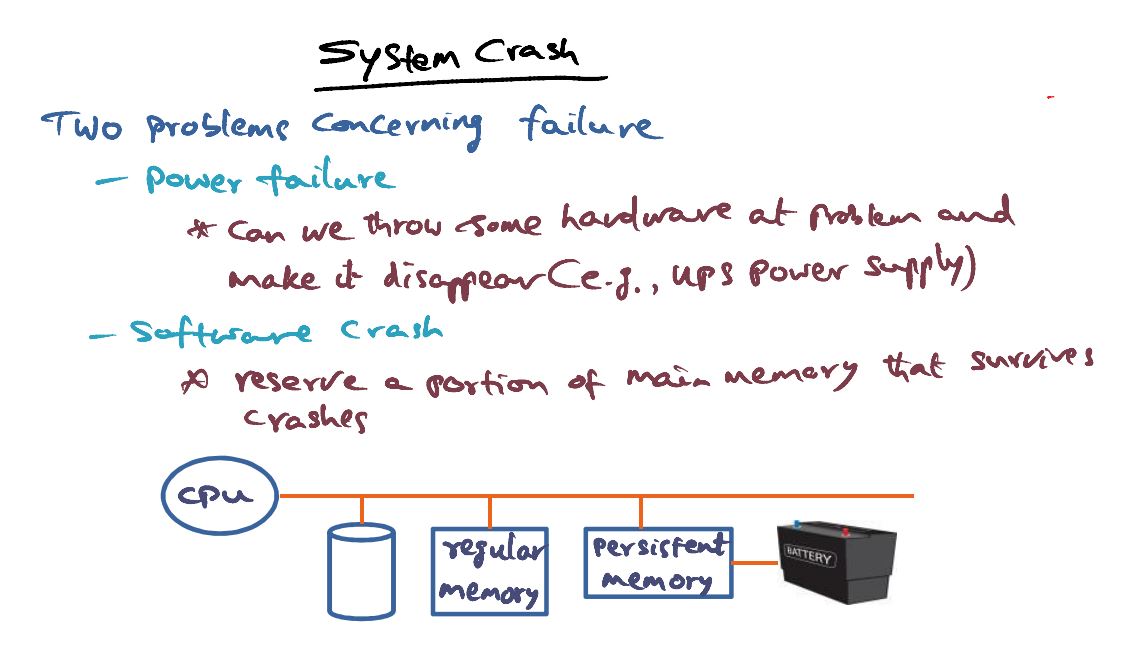 System Crash
Two problems concerning failure
- Power failure
* Can we throw some hardware at problem and
make it disappear (e.g., UPS power supply)
- Software crash
* reserve a portion of main memory that survives
crashes
CPU
regular
memory
persistent
memory
BATTERY